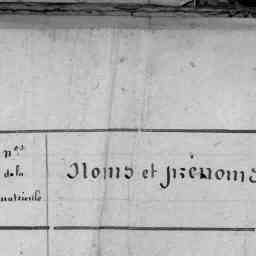 nos
de la
matricule
Noms et prénoms